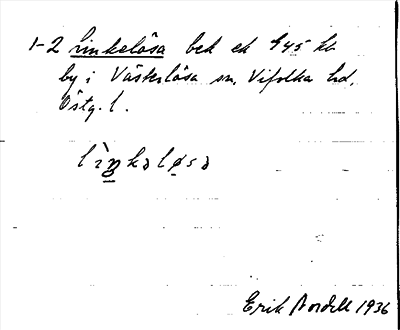 1-2 Linkelösa bek ek 945 kb
by i Västerlösa sn. Vifolka hd.
Östg. l.
lìŋkəløsə
Erik Nordell 1936